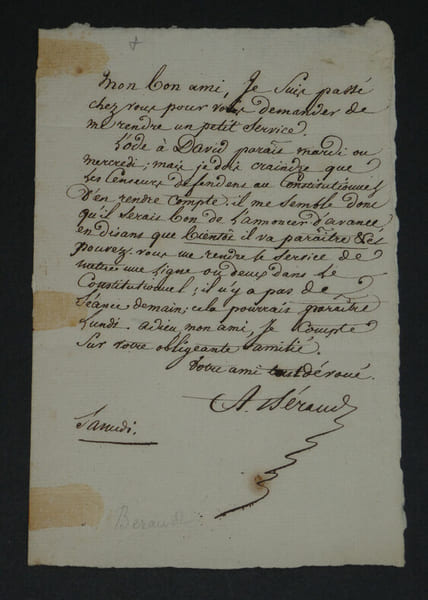 Mon bon ami, Je suis passé
chez vous pour vous demander de
me rendre un petit service.
L'ode à David parait mardi ou
mercredi; mais je dois craindre que
les Censeurs défendent au Constitutionnel
D'en rendre Compte; il me semble donc
qu'il serait bon de l'annoncer d'avance,
en disant que bientôt il va paraître &c
pouvez vous me rendre le service de
mettre une ligne ou deux dans le
Constitutionnel; il n'y a pas de
Séance demain; cela pourrait paraître
Lundi. adieu mon ami, Je Compte
Sur votre obligeante amitié.
Votre ami tout dévoué.
A. Béraud
Samedi.
Beraud